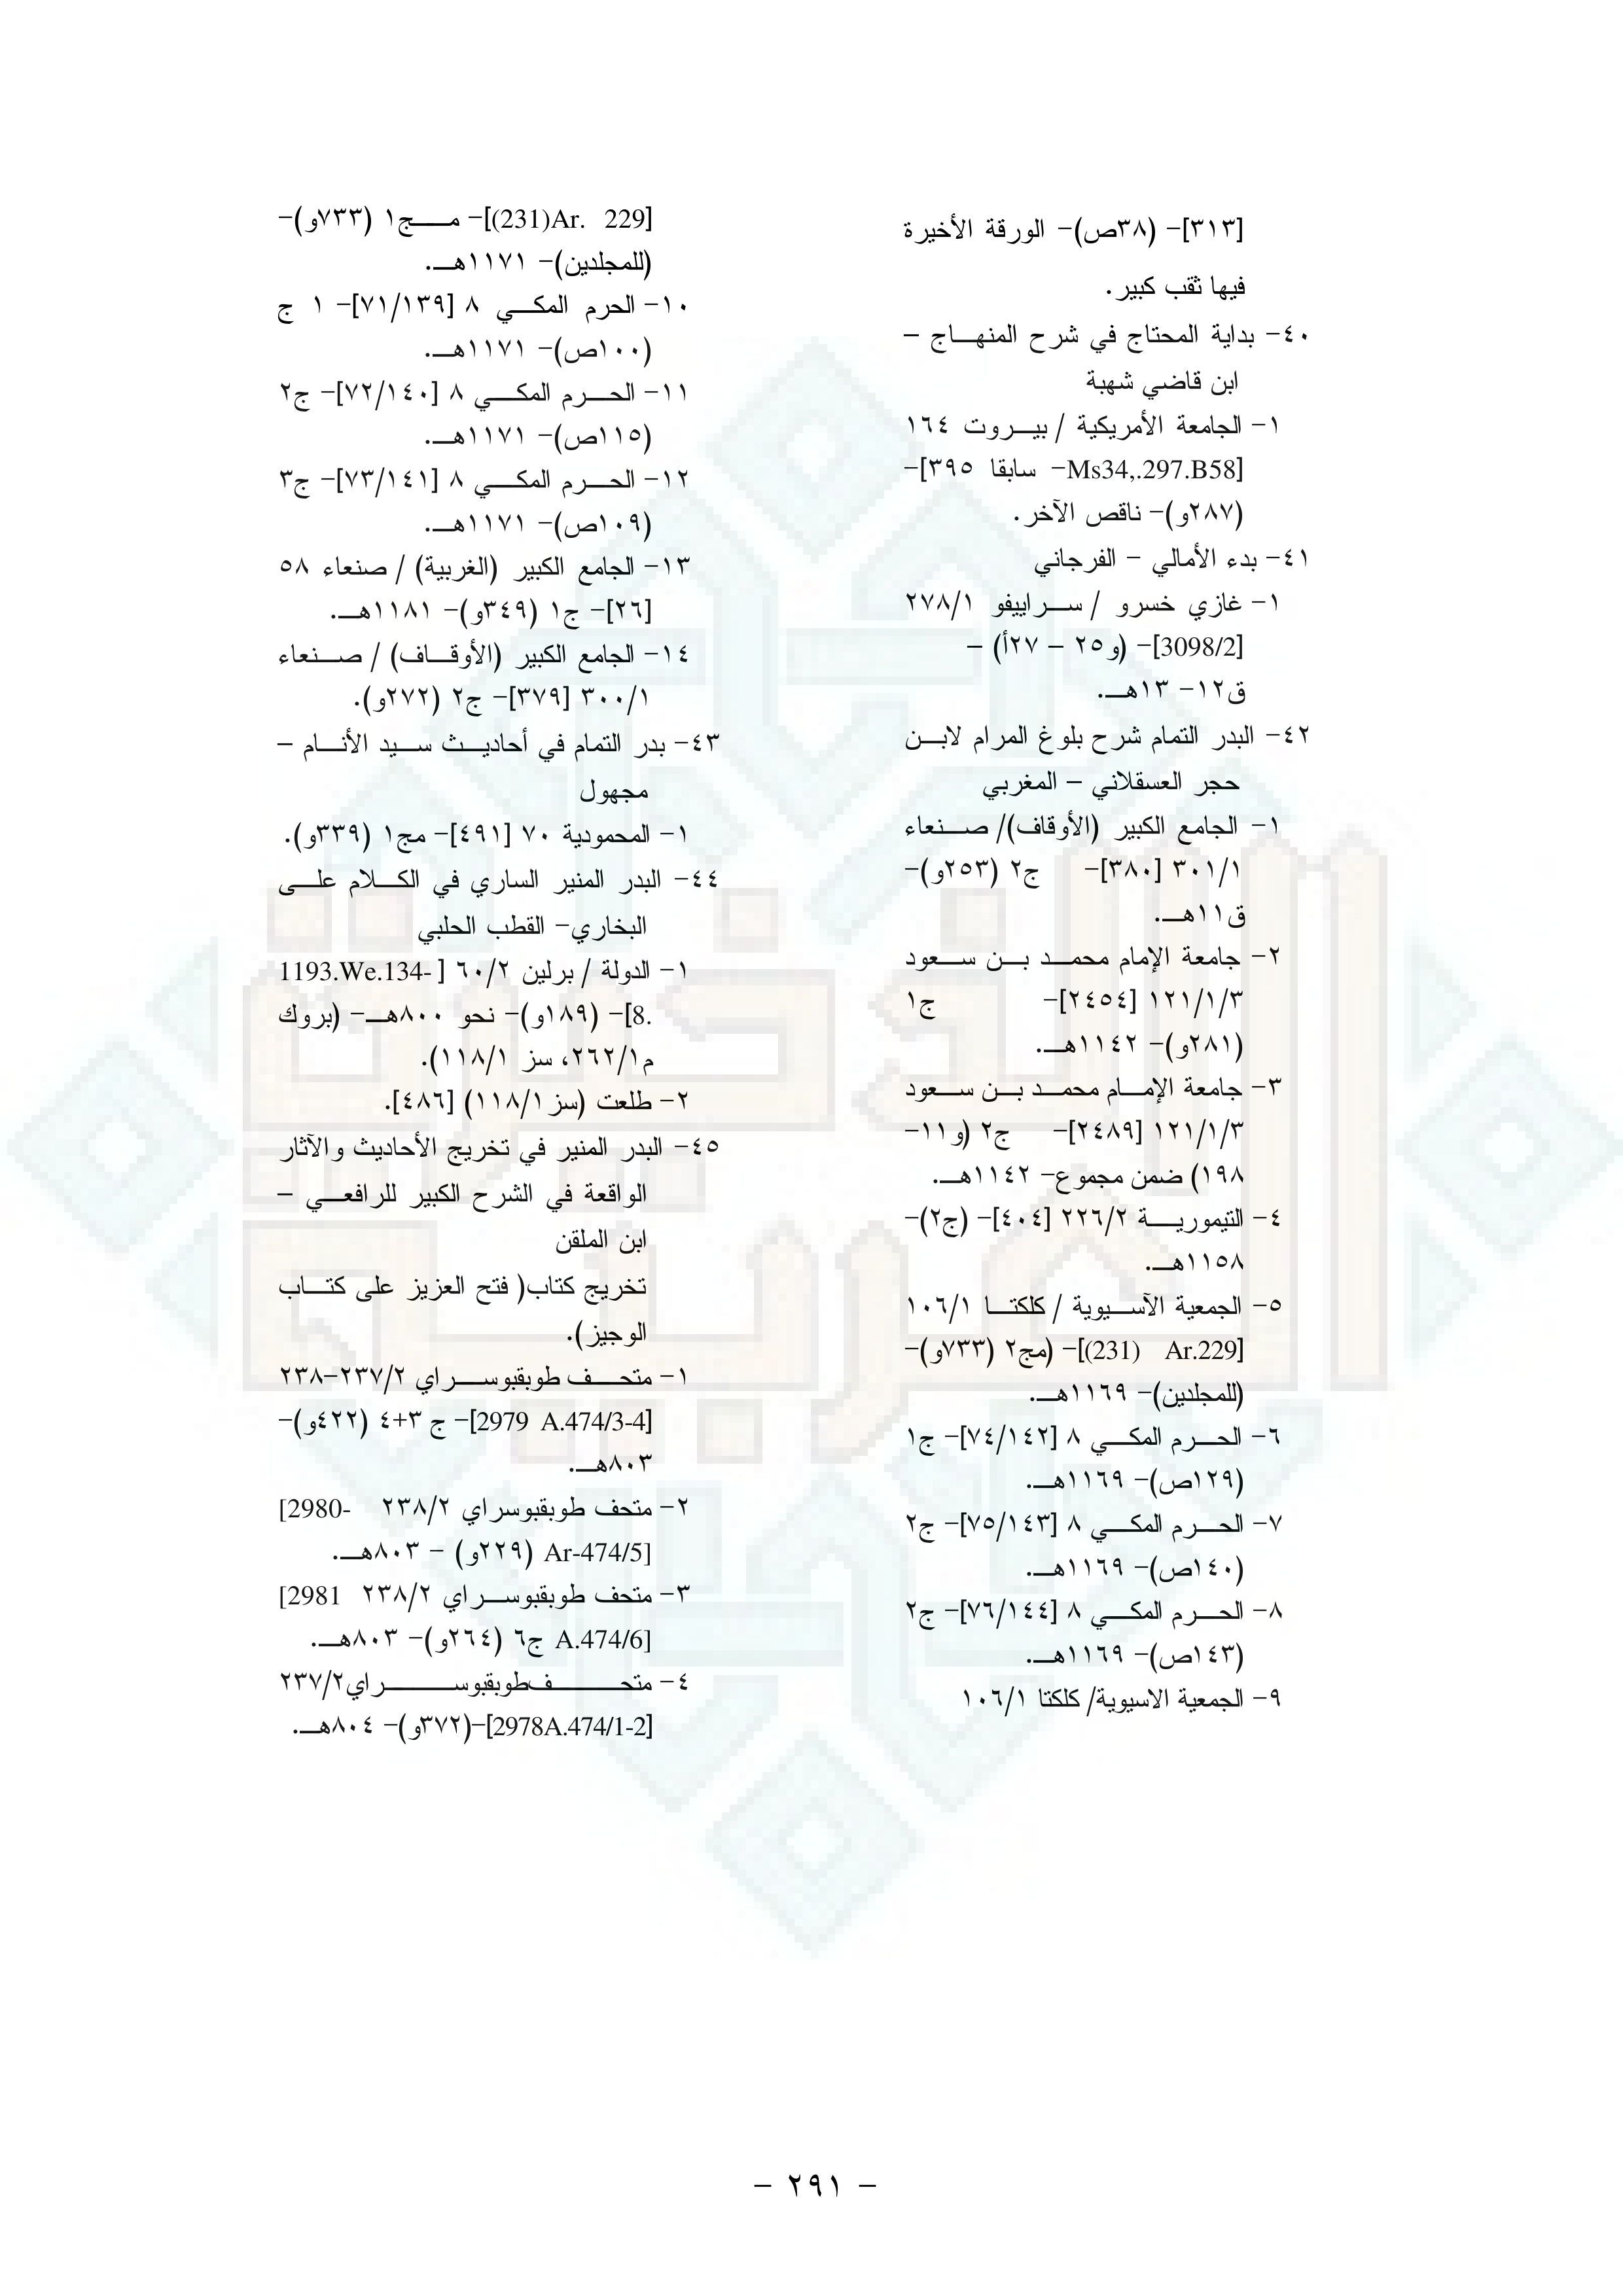 [٣١٣]- (٣٨ص)- الورقة الأخيرة
فيها ثقب كبير.
٤٠- بداية المحتاج في شرح المنهاج –
ابن قاضي شهبة
١- الجامعة الأمريكية / بيروت ١٦٤
[Ms34,.297.B58- سابقا ٣٩٥]-
(٢٨٧و)- ناقص الآخر.
٤١- بدء الأمالي – الفرجاني
١- غازي خسرو / سراييفو ٢٧٨/١
[3098/2]- (و٢٥ – ٢٧أ) –
ق١٢- ١٣هـ.
٤٢- البدر التمام شرح بلوغ المرام لابن
حجر العسقلاني – المغربي
١- الجامع الكبير (الأوقاف)/ صنعاء
٣٠١/١ [٣٨٠]- ج٢ (٢٥٣و)-
ق١١هـ.
٢- جامعة الإمام محمد بن سعود
١٢١/١/٣ [٢٤٥٤]- ج١
(٢٨١و)- ١١٤٢هـ.
٣- جامعة الإمام محمد بن سعود
١٢١/١/٣ [٢٤٨٩]- ج٢ (و١١-
١٩٨) ضمن مجموع- ١١٤٢هـ.
٤- التيمورية ٢٢٦/٢ [٤٠٤]- (ج٢)-
١١٥٨هـ.
٥- الجمعية الآسيوية / كلكتا ١٠٦/١
[Ar.229 (231)]- (مج٢ (٧٣٣و)-
(للمجلدين)- ١١٦٩هـ.
٦- الحرم المكي ٨ [٧٤/١٤٢]- ج١
(١٢٩ص)- ١١٦٩هـ.
٧- الحرم المكي ٨ [٧٥/١٤٣]- ج٢
(١٤٠ص)- ١١٦٩هـ.
٨- الحرم المكي ٨ [٧٦/١٤٤]- ج٢
(١٤٣ص)- ١١٦٩هـ.
٩- الجمعية الاسيوية/ كلكتا ١٠٦/١
[(231)Ar. 229]- مج١ (٧٣٣و)-
(للمجلدين)- ١١٧١هـ.
١٠- الحرم المكي ٨ [٧١/١٣٩]- ١ ج
(١٠٠ص)- ١١٧١هـ.
١١- الحرم المكي ٨ [٧٢/١٤٠]- ج٢
(١١٥ص)- ١١٧١هـ.
١٢- الحرم المكي ٨ [٧٣/١٤١]- ج٣
(١٠٩ص)- ١١٧١هـ.
١٣- الجامع الكبير (الغربية) / صنعاء ٥٨
[٢٦]- ج١ (٣٤٩و)- ١١٨١هـ.
١٤- الجامع الكبير (الأوقاف) / صنعاء
٣٠٠/١ [٣٧٩]- ج٢ (٢٧٢و).
٤٣- بدر التمام في أحاديث سيد الأنام –
مجهول
١- المحمودية ٧٠ [٤٩١]- مج١ (٣٣٩و).
٤٤- البدر المنير الساري في الكلام على
البخاري- القطب الحلبي
١- الدولة / برلين ٦٠/٢ [ 1193.We.134-
8.]- (١٨٩و)- نحو ٨٠٠هـ- (بروك
م٢٦٢/١، سز ١١٨/١).
٢- طلعت (سز١١٨/١) [٤٨٦].
٤٥- البدر المنير في تخريج الأحاديث والآثار
الواقعة في الشرح الكبير للرافعي –
ابن الملقن
تخريج كتاب( فتح العزيز على كتاب
الوجيز).
١- متحف طوبقبوسراي ٢٣٧/٢-٢٣٨
[2979 A.474/3-4]- ج ٣+٤ (٤٢٢و)-
٨٠٣هـ.
٢- متحف طوبقبوسراي ٢٣٨/٢ [2980-
Ar-474/5] (٢٢٩و) – ٨٠٣هـ.
٣- متحف طوبقبوسراي ٢٣٨/٢ [2981
A.474/6] ج٦ (٢٦٤و)- ٨٠٣هـ.
٤- متحف طوبقبوسراي٢٣٧/٢
[2978A.474/1-2]-(٣٧٢و)- ٨٠٤هـ.
– ٢٩١ –
الذخائر
العربية